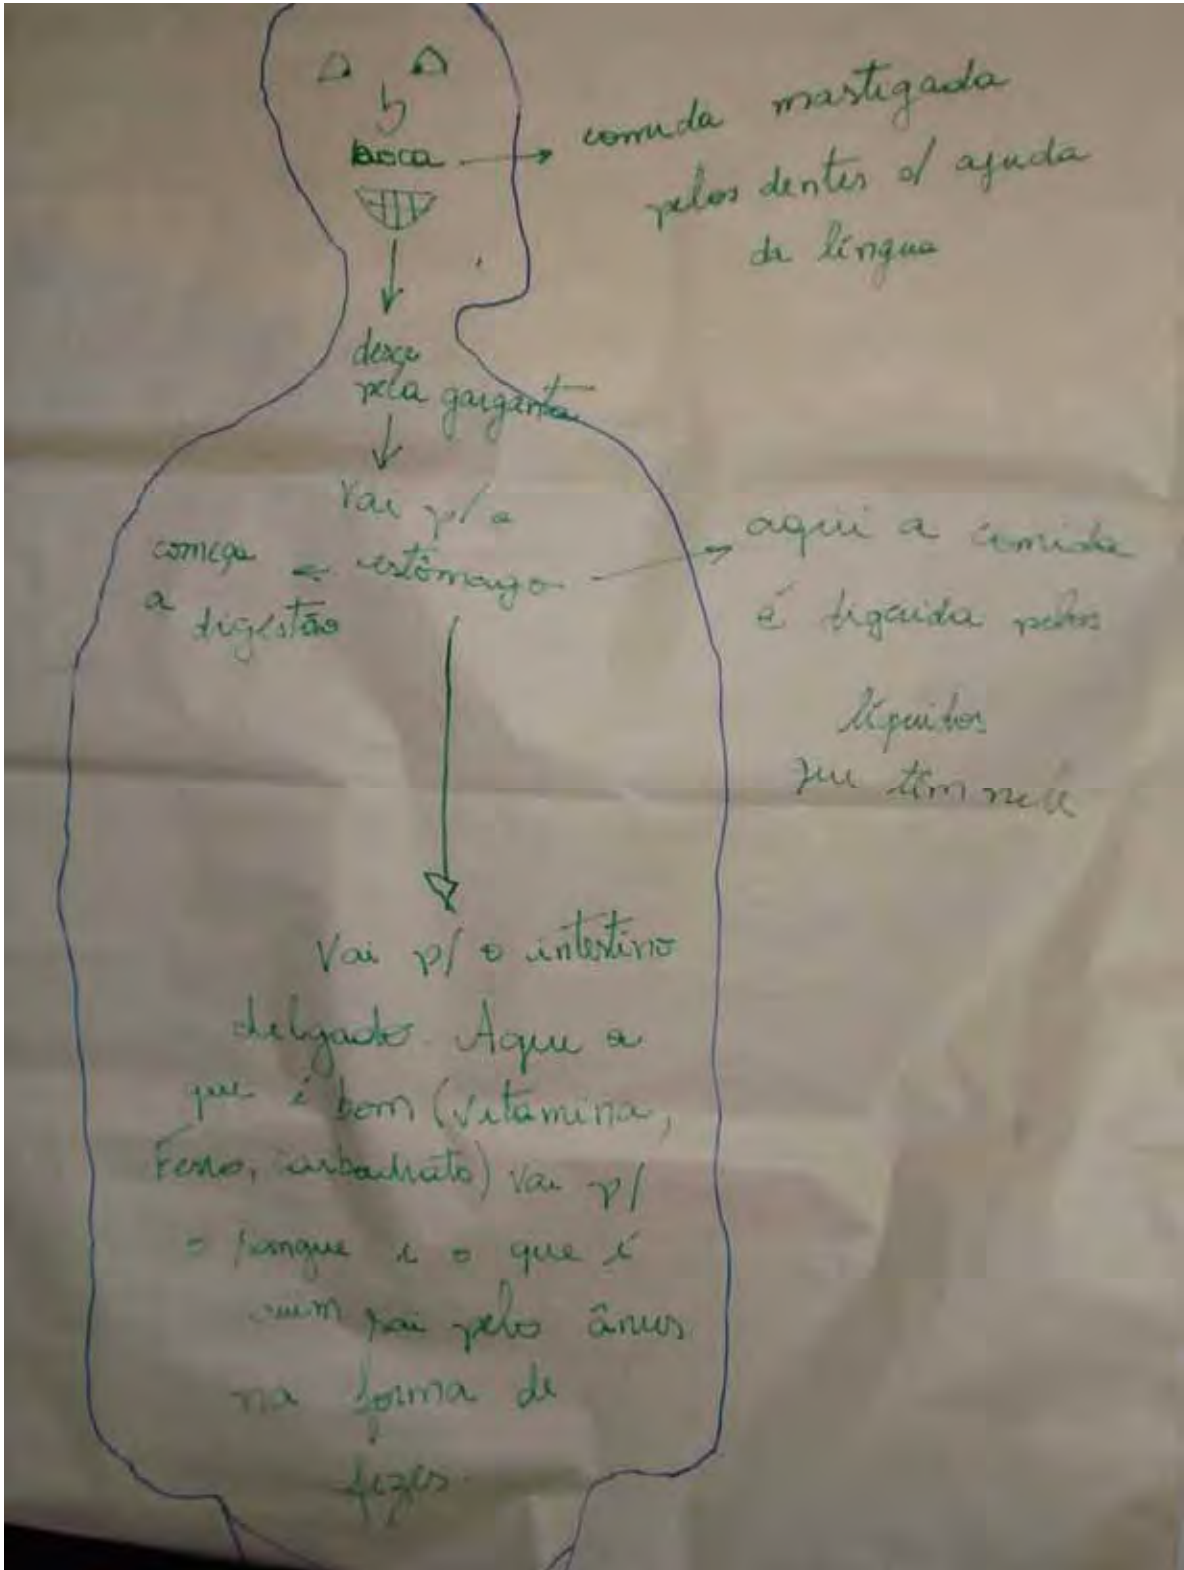 boca
comida mastigada
pelos dentes c/ ajuda
da língua
desce
pela garganta
Vai p/ o
estômago
começa
a digestão
aqui a comida
é digerida pelos
líquidos
que têm nele
Vai p/ o intestino
delgado. Aqui o
que é bom (vitamina,
Ferro, carboidrato) vai p/
o sangue e o que é
ruim sai pelo ânus
na forma de
fezes.